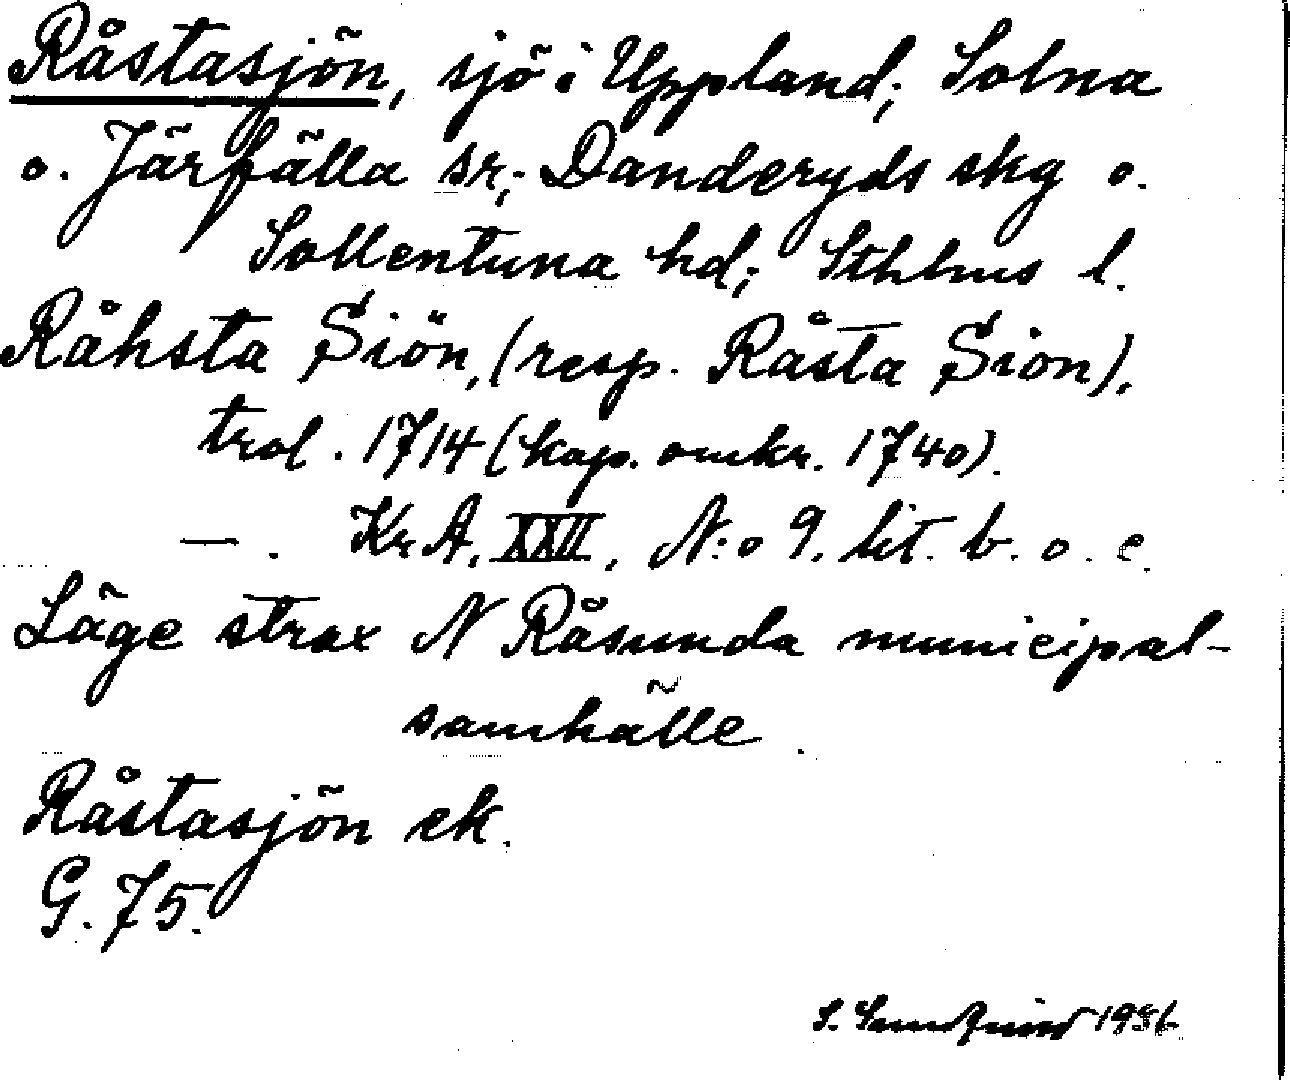 Råstasjön, sjö i Uppland; Solna
o. Järfälla sr; Danderyds skg o.
Sollentuna hd; Sthlms l.
Råhsta Siön, (resp. Råsta Sion),
trol. 1714 (kap. omkr. 1740).
—. KrA, XXII, N:o 9. lit. b. o. c.
Läge strax N Råsunda municipal-
samhälle.
Råstasjön ek.
G. 75.
S. 1936